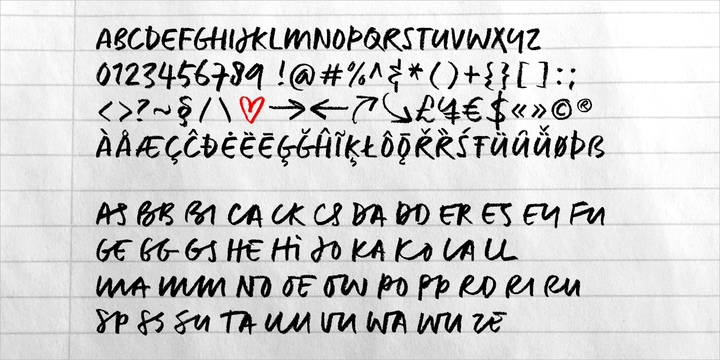 ABCDEFGHIJKLMNOPQRSTUVWXYZ
0123456789 !@#%^&*()+{}[]:;
<>?~§/\♥→←↗↘£¥€$«»©®
ÀÅÆÇĈĐĖËĒĢĞĤĨĶŁÔǬŘȐŚŦÜÛǓØÞß
AS BB BI CA CK CS DA DO ER ES EY FU
GE GG GS HE Hi JO KA KO LA LL
MA MM NO OE OW PO PP RO RI RU
SP SS SU TA UU VU WA WU ZE